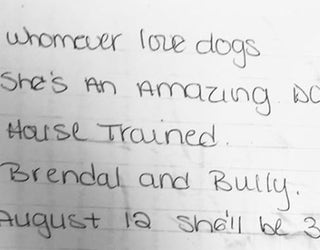 whomever love dogs
She's An Amazing
House Trained.
Brendal and Bully.
August 12 she'll be 3